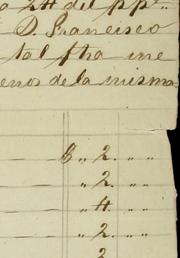 a 24 del pp.
D. Francisco
tal fha me
enor de la misma
$ " 2. " "
" 2. " "
" 4. " "
" 2. " "
2